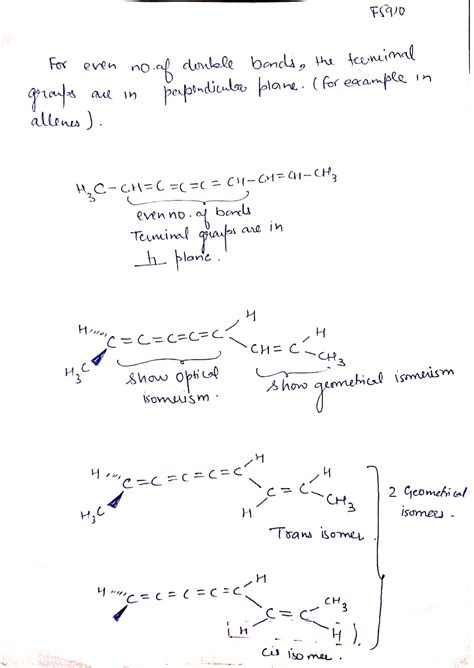 F5910
For even no. of double bonds, the terminal
groups are in perpendicular plane. (for example in
allenes).
H3C-CH=C=C=C=CH-CH=CH-CH3
even no. of bonds
Terminal groups are in
⊥r plane.
H
H C=C=C=C=C H
H3C CH=C CH3
show optical show geometrical isomerism
isomerism.
H
H C=C=C=C=C H
H3C C=C CH3
H
Trans isomer.
2 Geometrical
isomers.
H C=C=C=C=C H
CH3
C=C
H H
cis isomer.